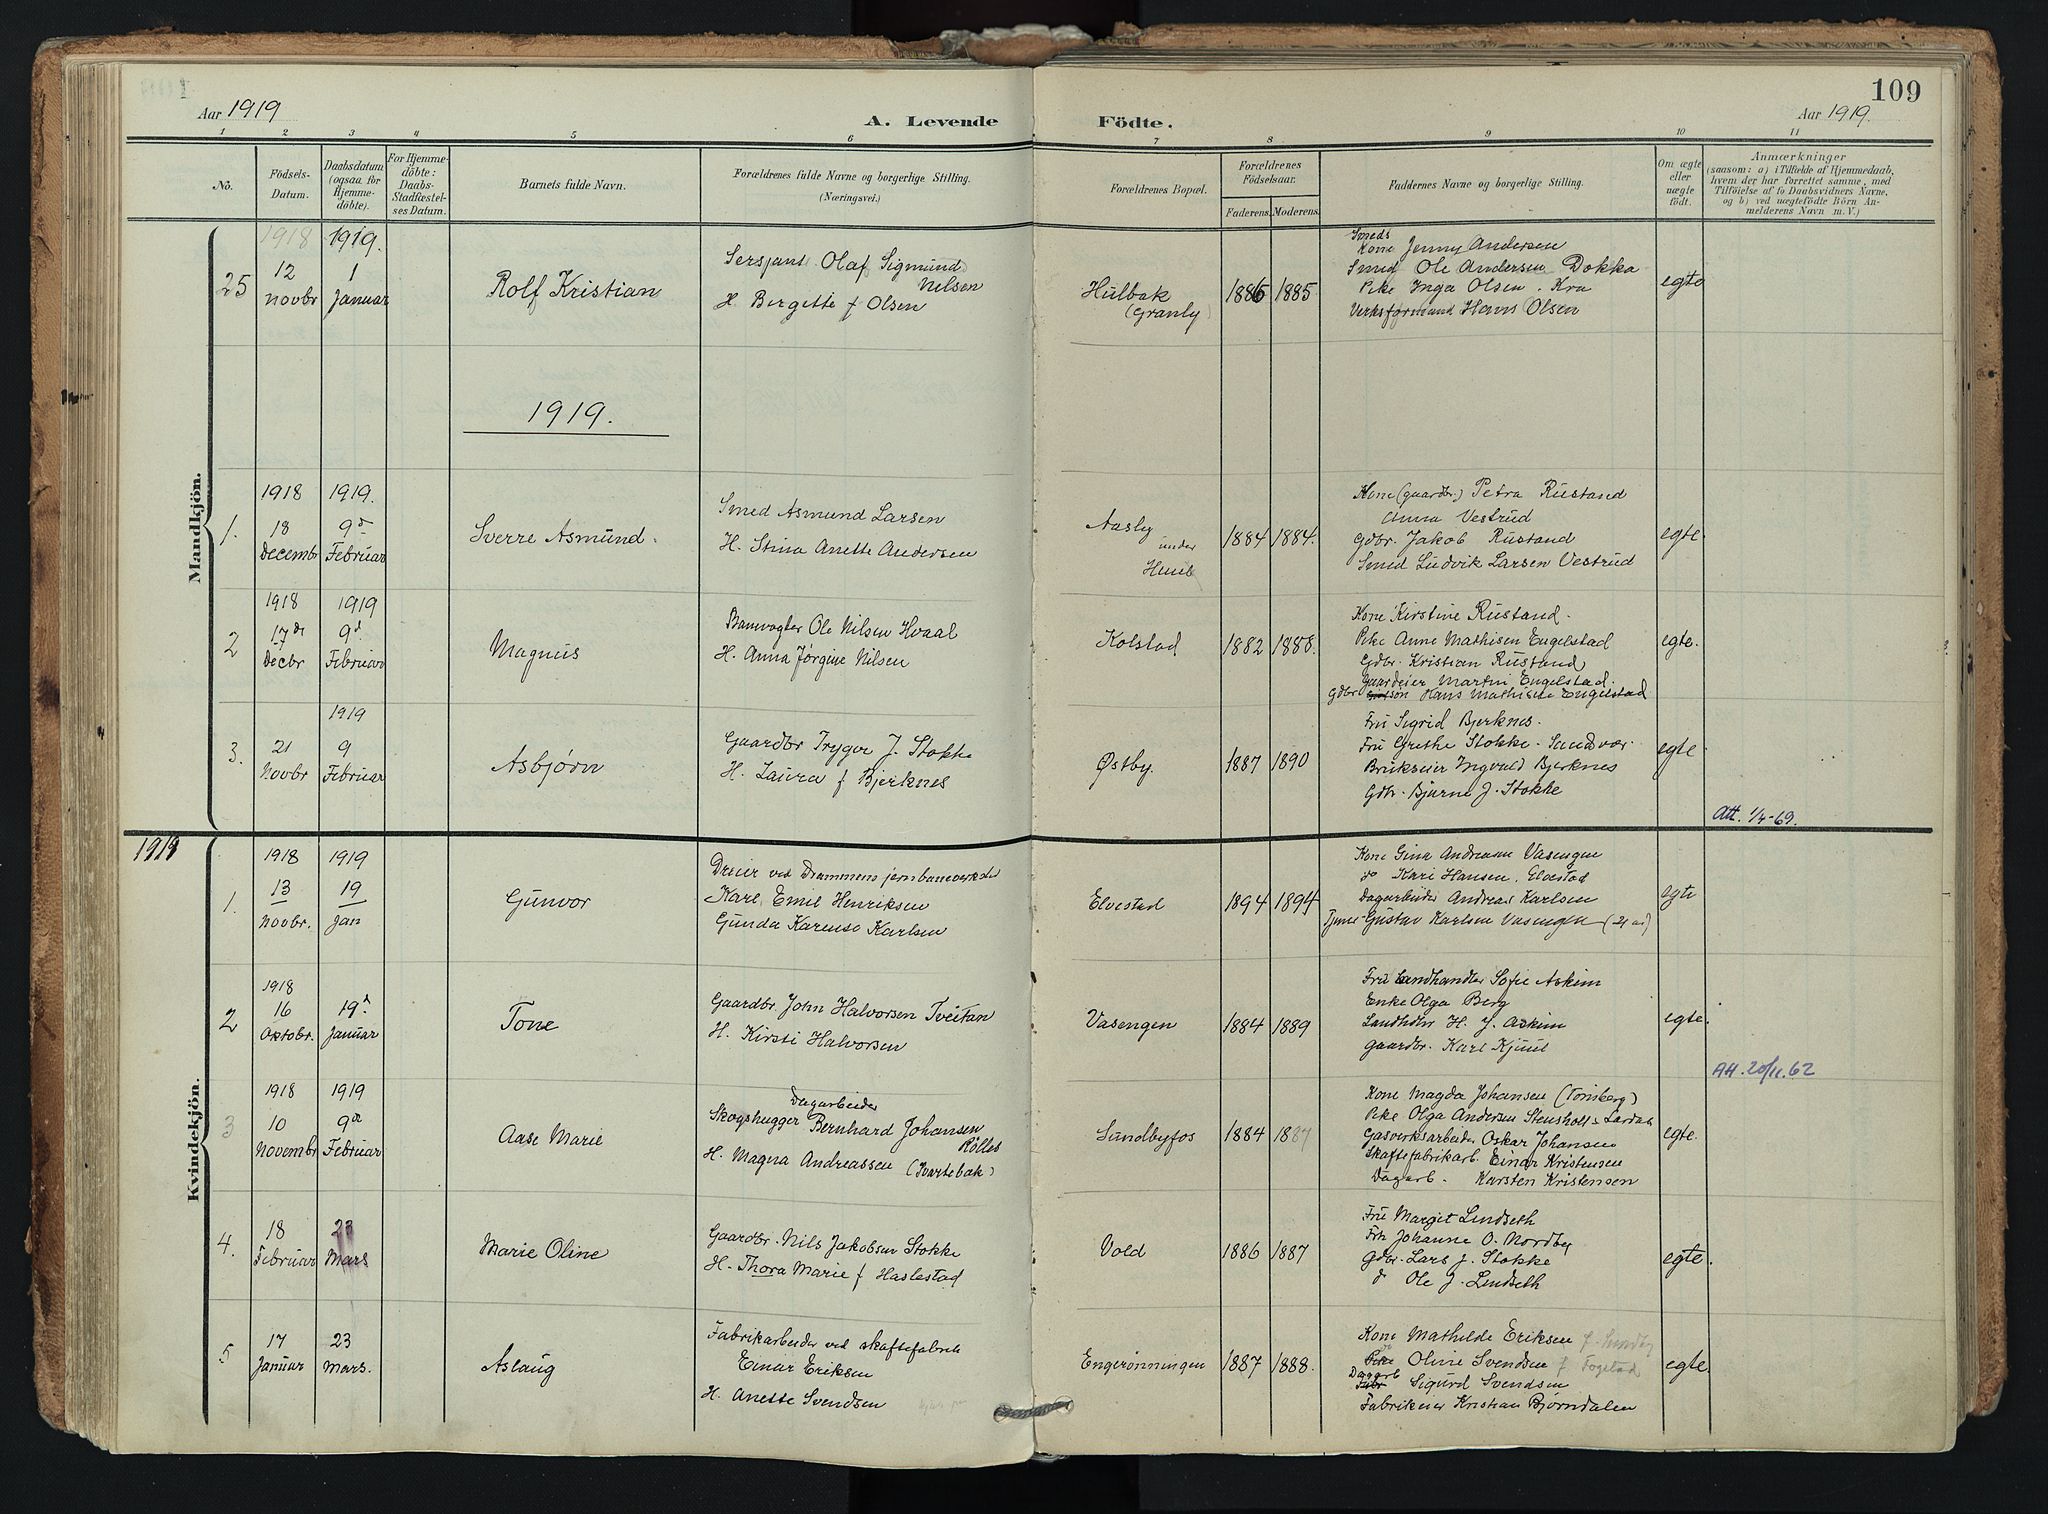 109
Aar 1919
A. Levende Födte.
Aar 1919.
1 2 3 4 5 6 7 8 9 10 11
No.
Födsels-
Datum.
Daabsdatum
(ogsaa for
Hjemme-
döbte).
For Hjemme-
döbte:
Daabs-
Stadfæstel-
ses Datum.
Barnets fulde Navn.
Forældrenes fulde Navne og borgerlige Stilling.
(Næringsvei.)
Forældrenes Bopæl.
Forældrenes
Födselsaar.
Faderens. Moderens.
Faddernes Navne og borgerlige Stilling.
Om ægte
eller
uægte
födt.
Anmærkninger
(saasom: a) i Tilfælde af Hjemmedaab,
hvem der har forrettet samme, med
Tilföielse af to Daabsvidners Navne,
og b) ved uægtefödte Börn An-
melderens Navn m. V.)
Mandkjön.
25
1918
12
Novbr
1919.
1
Januar
Rolf Kristian
Sersjant Olaf Sigmund
Nilsen
H. Bergette f Olsen
Hulbak
(Granly)
1886 1885
Smeds
Kone Jenny Andersen
Smed Ole Andersen Dokka
Pike Inga Olsen. Kra
Verksformand Hans Olsen
egte
1919.
1.
1918
18
Decembr
1919.
9d
Februar
Sverre Asmund.
Smed Asmund Larsen
H. Stina Anette Andersen
Aasly
under
1884 1884.
Kone (gaardbr.) Petra Rustand
Anna Vestrud
Gdbr. Jakob Rustand
Smed Ludvik Larsen Vestrud
egte.
2
1918
17de
Decbr
1919
9d
Februar
Magnus
Banevogter Ole Nilsen Hvaal
H. Anna Jørgine Nilsen
Kolstad
1882 1888.
Kone Kirstine Rustand.
Pike Anne Mathisen Engelstad
Gdbr. Kristian Rustand
Gaardeier Martin Engelstad.
Gdbr Hans Mathisen Engelstad
egte.
3.
21
Novbr
1919
9
Februar
Asbjørn
Gaardbr Trygve J. Stokke
H. Laura f Bjerknes
Østby.
1887 1890
Fru Sigrid Bjerknes.
Fru Grethe Stokke. Sandsvær.
Brukseier Ingvald Bjerknes
Gdbr. Bjarne J. Stokke
egte
Att. 1/4-69.
1919
Kvindekjön.
1.
1918
13
Novbr.
1919
19
Jan
Gunvor
Dreier ved Drammens jernbaneverksted
Karl Emil Henriksen
Gunda Karense Karlsen
Elvestad
1894 1894
Kone Gina Andreasen Vasengen
do Kari Hansen, Elvestad
Dagarbeider Andreas Karlsen
Gustav Karlsen Vasengen (21 aar)
egte
2
1918
16
Oktobr.
19d
Januar
Tone
Gaardbr. John Halvorsen Tveitan
H. Kirsti Halvorsen
Vasengen
1884 1889
Fru Landhandler Sofie Askim
Enke Olga Berg
Landhdlr H. J. Askim
Gaardbr. Karl Kjuul
egte.
Att. 20/11.62
3
1918
10
Novembr
1919
9d
Februar
Aase Marie
Dagarbeider
Skogshugger Bernhard Johansen
Rølles
H. Magna Andreassen (Svartebak)
Sundbyfos
1884 1887
Kone Magda Johansen (Tønsberg)
Pike Olga Andersen Stensholt - Lardal
Gasverksarbeider Oskar Johansen
Skaftefabrikarb. Einar Kristensen
Dagarb. Karsten Kristensen
egte.
4.
18
Februar
23
Mars
Marie Oline
Gaardbr. Nils Jakobsen Stokke
H. Thora Marie f Haslestad
Vold
1886 1887
Fru Margit Lindseth
Frk Johanne O. Nordby
Gdbr. Lars J. Stokke
do Ole J. Lindseth
egte.
5
17
Januar
23
Mars.
Aslaug
Fabrikarbeider ved skaftefabrik
Einar Eriksen
H. Anette Svendsen
Engerønningen
1887 1888.
Kone Mathilde Eriksen f. Sundby
Pike Oline Svendsen f Fogstad
Dagarb Sigurd Svendsen
Fabrikeier Kristian Bjørndalen
egte.